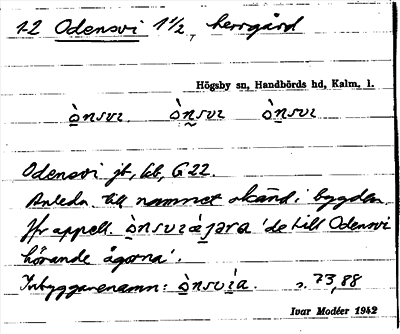 1-2 Odensvi 1 1/2, herrgård
Högsby sn, Handbörds hd, Kalm. l.
ò̱nsvı. ò̱nsvı ò̱nsvı
Odensvi jb, kb, G 22.
Anledn. till namnet okänd i bygden.
Jfr appell. ò̱nsvıá̱jəra 'de till Odensvi
hörande ägorna'.
Inbyggarenamn: ò̱nsvía. s. 73, 88
Ivar Modéer 1942